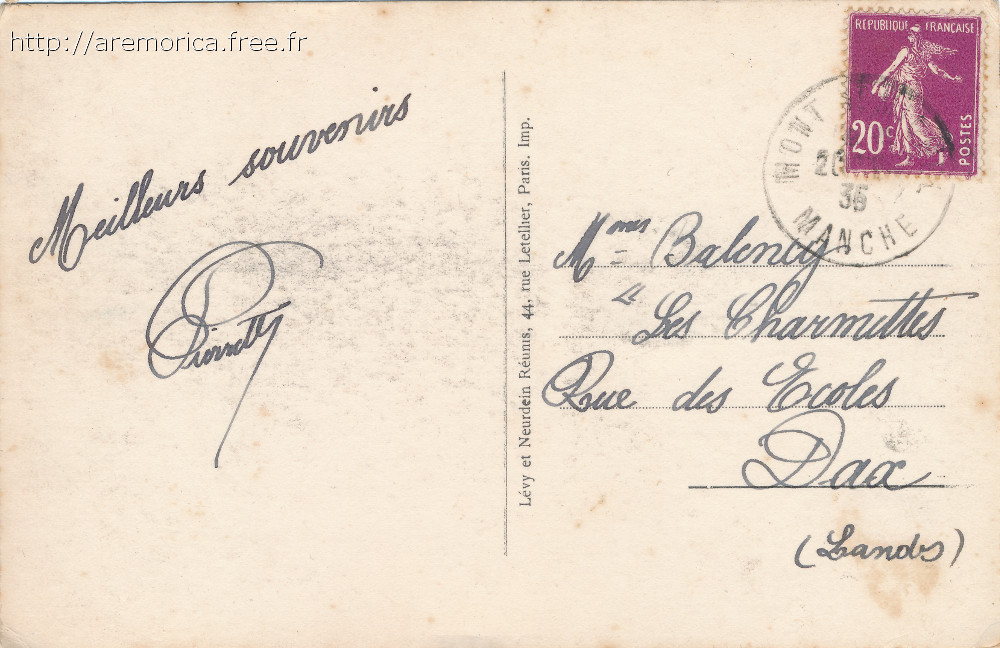 http://aremorica.free.fr
Meilleurs souvenirs
Pierrette
Lévy et Neurdein Réunis, 44, rue Letellier, Paris. Imp.
RÉPUBLIQUE FRANÇAISE
20c
POSTES
MONT
36
MANCHE
Mmes Balency
"Les Charmettes
Rue des Ecoles
Dax
(Landes)